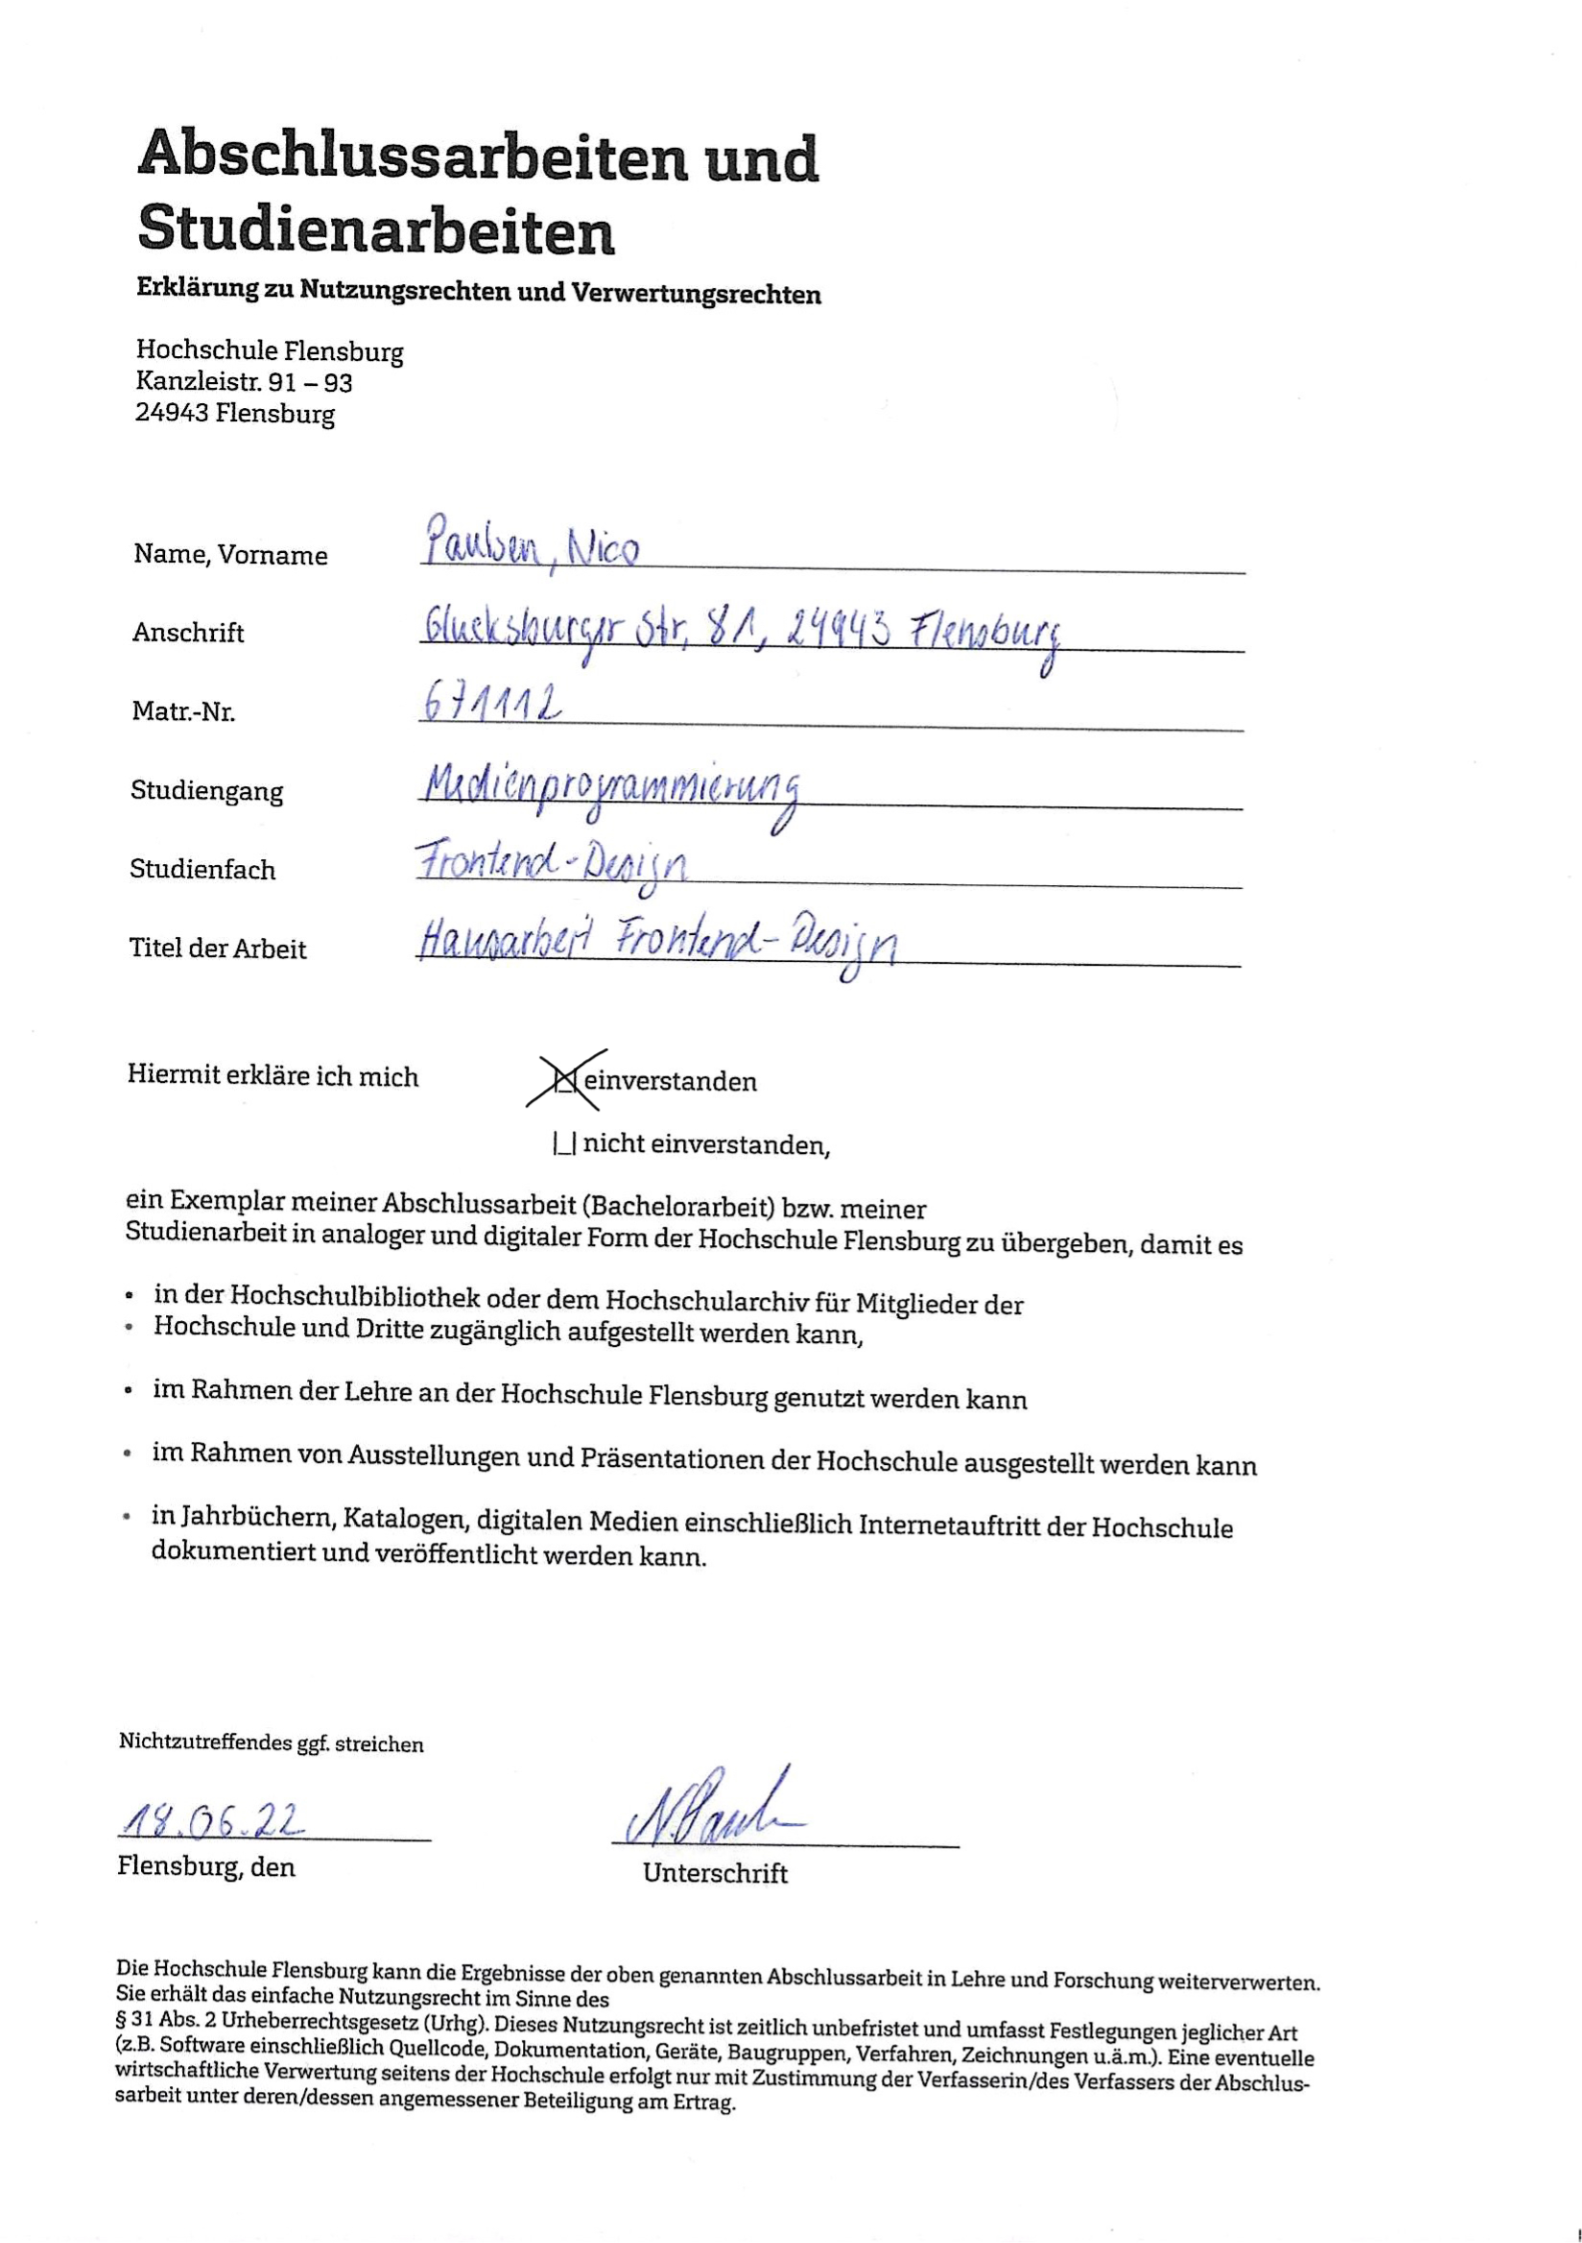 Abschlussarbeiten und
Studienarbeiten
Erklärung zu Nutzungsrechten und Verwertungsrechten
Hochschule Flensburg
Kanzleistr. 91 – 93
24943 Flensburg
Name, Vorname Paulsen, Nico
Anschrift Glucksburger Str. 81, 24943 Flensburg
Matr.-Nr. 671112
Studiengang Medienprogrammierung
Studienfach Frontend-Design
Titel der Arbeit Hausarbeit Frontend-Design
Hiermit erkläre ich mich einverstanden
nicht einverstanden,
ein Exemplar meiner Abschlussarbeit (Bachelorarbeit) bzw. meiner
Studienarbeit in analoger und digitaler Form der Hochschule Flensburg zu übergeben, damit es
• in der Hochschulbibliothek oder dem Hochschularchiv für Mitglieder der
• Hochschule und Dritte zugänglich aufgestellt werden kann,
• im Rahmen der Lehre an der Hochschule Flensburg genutzt werden kann
• im Rahmen von Ausstellungen und Präsentationen der Hochschule ausgestellt werden kann
• in Jahrbüchern, Katalogen, digitalen Medien einschließlich Internetauftritt der Hochschule
dokumentiert und veröffentlicht werden kann.
Nichtzutreffendes ggf. streichen
18.06.22
Flensburg, den Unterschrift
Die Hochschule Flensburg kann die Ergebnisse der oben genannten Abschlussarbeit in Lehre und Forschung weiterverwerten.
Sie erhält das einfache Nutzungsrecht im Sinne des
§ 31 Abs. 2 Urheberrechtsgesetz (Urhg). Dieses Nutzungsrecht ist zeitlich unbefristet und umfasst Festlegungen jeglicher Art
(z.B. Software einschließlich Quellcode, Dokumentation, Geräte, Baugruppen, Verfahren, Zeichnungen u.ä.m.). Eine eventuelle
wirtschaftliche Verwertung seitens der Hochschule erfolgt nur mit Zustimmung der Verfasserin/des Verfassers der Abschlus-
sarbeit unter deren/dessen angemessener Beteiligung am Ertrag.